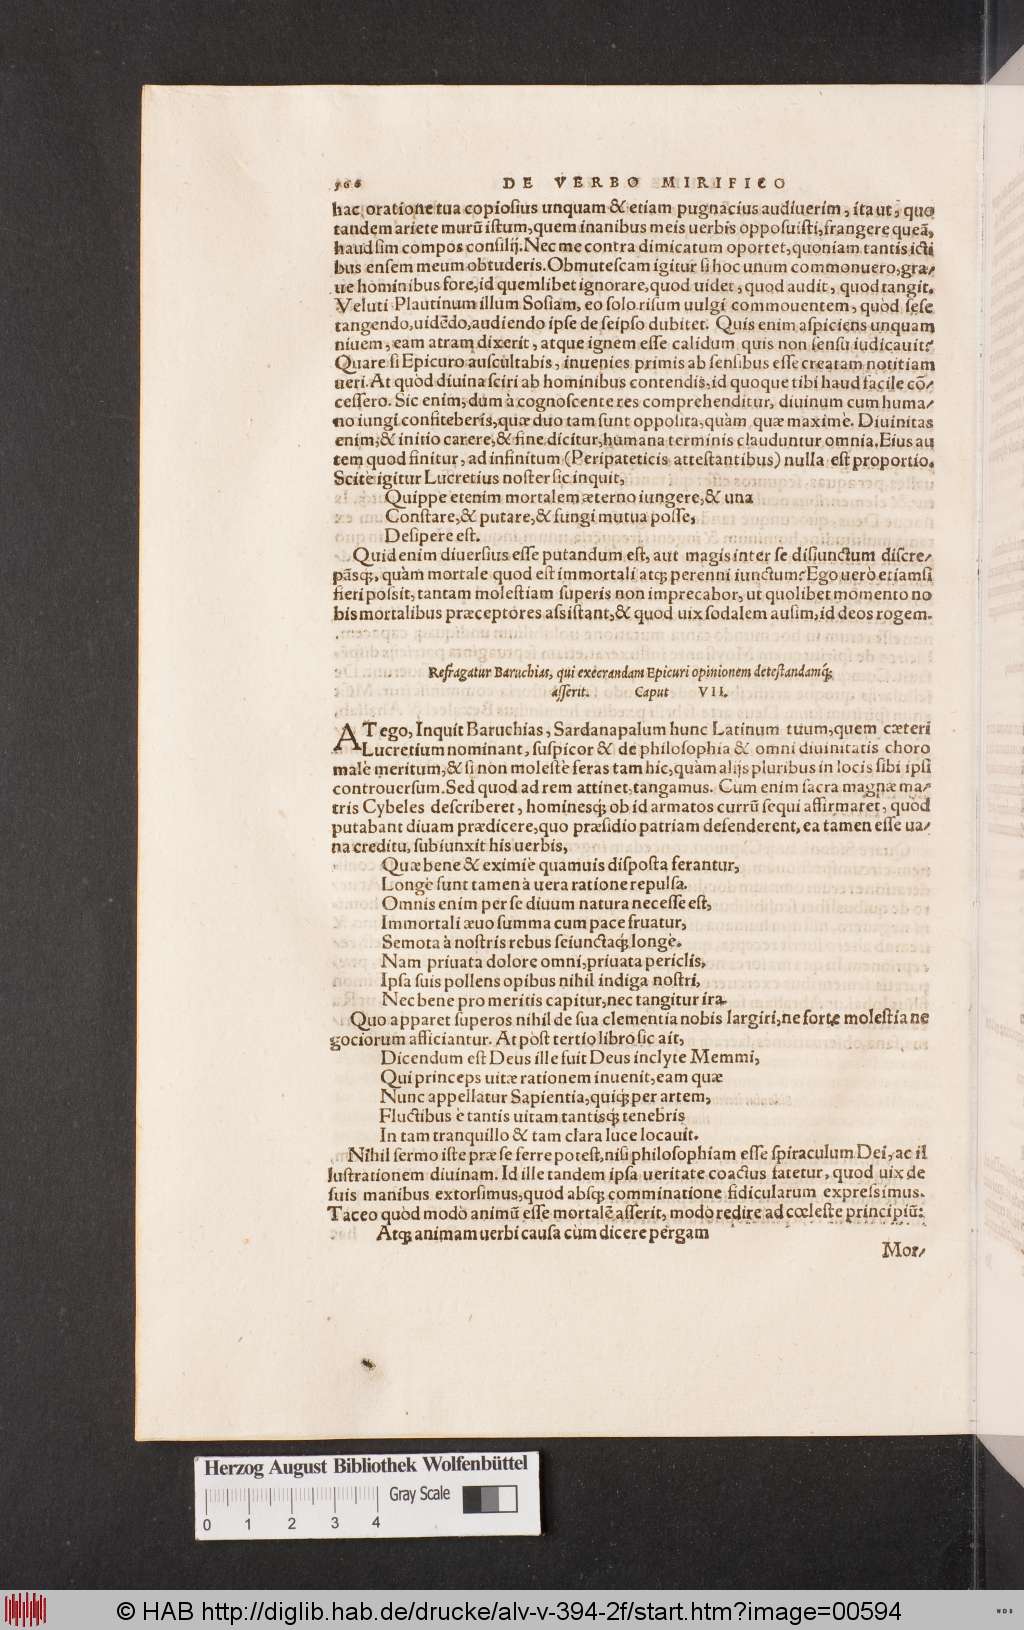 966 DE VERBO MIRIFICO
hac oratione tua copiosius unquam & etiam pugnacius audiuerim, ita ut, quo
tandem ariete murũ istum, quem inanibus meis uerbis opposuisti, frangere queã,
haud sim compos consilij. Nec me contra dimicatum oportet, quoniam tantis icti
bus ensem meum obtuderis. Obmutescam igitur si hoc unum commonuero, gra-
ue hominibus fore, id quemlibet ignorare, quod uidet, quod audit, quod tangit.
Veluti Plautinum illum Sosiam, eo solo risum uulgi commouentem, quòd sese
tangendo, uidẽdo, audiendo ipse de seipso dubitet. Quis enim aspiciens unquam
niuem, eam atram dixerit, atque ignem esse calidum quis non sensu iudicauit?
Quare si Epicuro auscultabis, inuenies primis ab sensibus esse creatam notitiam
ueri. At quòd diuina sciri ab hominibus contendis, id quoque tibi haud facile cõ-
cessero. Sic enim, dum à cognoscente res comprehenditur, diuinum cum huma-
no iungi confiteberis, quæ duo tam sunt opposita, quàm quæ maximè. Diuinitas
enim, & initio carere, & fine dicitur, humana terminis clauduntur omnia. Eius au
tem quod finitur, ad infinitum (Peripateticis attestantibus) nulla est proportio.
Scitè igitur Lucretius noster sic inquit,
Quippe etenim mortalem æterno iungere, & una
Constare, & putare, & fungi mutua posse,
Desipere est.
Quid enim diuersius esse putandum est, aut magis inter se disiunctum discre-
pãsq́;, quàm mortale quod est immortali atq; perenni iunctum? Ego uerò etiamsi
fieri possit, tantam molestiam superis non imprecabor, ut quolibet momento no
bis mortalibus præceptores assistant, & quod uix sodalem ausim, id deos rogem.
Refragatur Baruchias, qui execrandam Epicuri opinionem detestandamq́;
asserit. Caput VII.
AT ego, Inquit Baruchias, Sardanapalum hunc Latinum tuum, quem cæteri
Lucretium nominant, suspicor & de philosophia & omni diuinitatis choro
malè meritum, & si non molestè feras tam hic, quàm alijs pluribus in locis sibi ipsi
controuersum. Sed quod ad rem attinet, tangamus. Cùm enim sacra magnæ ma-
tris Cybeles describeret, hominesq́; ob id armatos currũ sequi affirmaret, quòd
putabant diuam prædicere, quo præsidio patriam defenderent, ea tamen esse ua-
na creditu, subiunxit his uerbis,
Quæ bene & eximiè quamuis disposta ferantur,
Longè sunt tamen à uera ratione repulsa.
Omnis enim per se diuum natura necesse est,
Immortali æuo summa cum pace fruatur,
Semota à nostris rebus seiunctaq́; longè.
Nam priuata dolore omni, priuata periclis,
Ipsa suis pollens opibus nihil indiga nostri,
Nec bene pro meritis capitur, nec tangitur ira.
Quo apparet superos nihil de sua clementia nobis largiri, ne forte molestia ne
gociorum afficiantur. At pòst tertio libro sic ait,
Dicendum est Deus ille fuit Deus inclyte Memmi,
Qui princeps uitæ rationem inuenit, eam quæ
Nunc appellatur Sapientia, quiq́; per artem,
Fluctibus è tantis uitam tantisq́; tenebris
In tam tranquillo & tam clara luce locauit.
Nihil sermo iste præ se ferre potest, nisi philosophiam esse spiraculum Dei, ac il
lustrationem diuinam. Id ille tandem ipsa ueritate coactus fatetur, quod uix de
suis manibus extorsimus, quod absq; comminatione fidicularum expressimus.
Taceo quòd modò animũ esse mortalẽ asserit, modò redire ad cœleste principiũ:
Atq; animam uerbi causa cùm dicere pergam
Mor-
Herzog August Bibliothek Wolfenbüttel
Gray Scale
0 1 2 3 4
© HAB http://diglib.hab.de/drucke/alv-v-394-2f/start.htm?image=00594